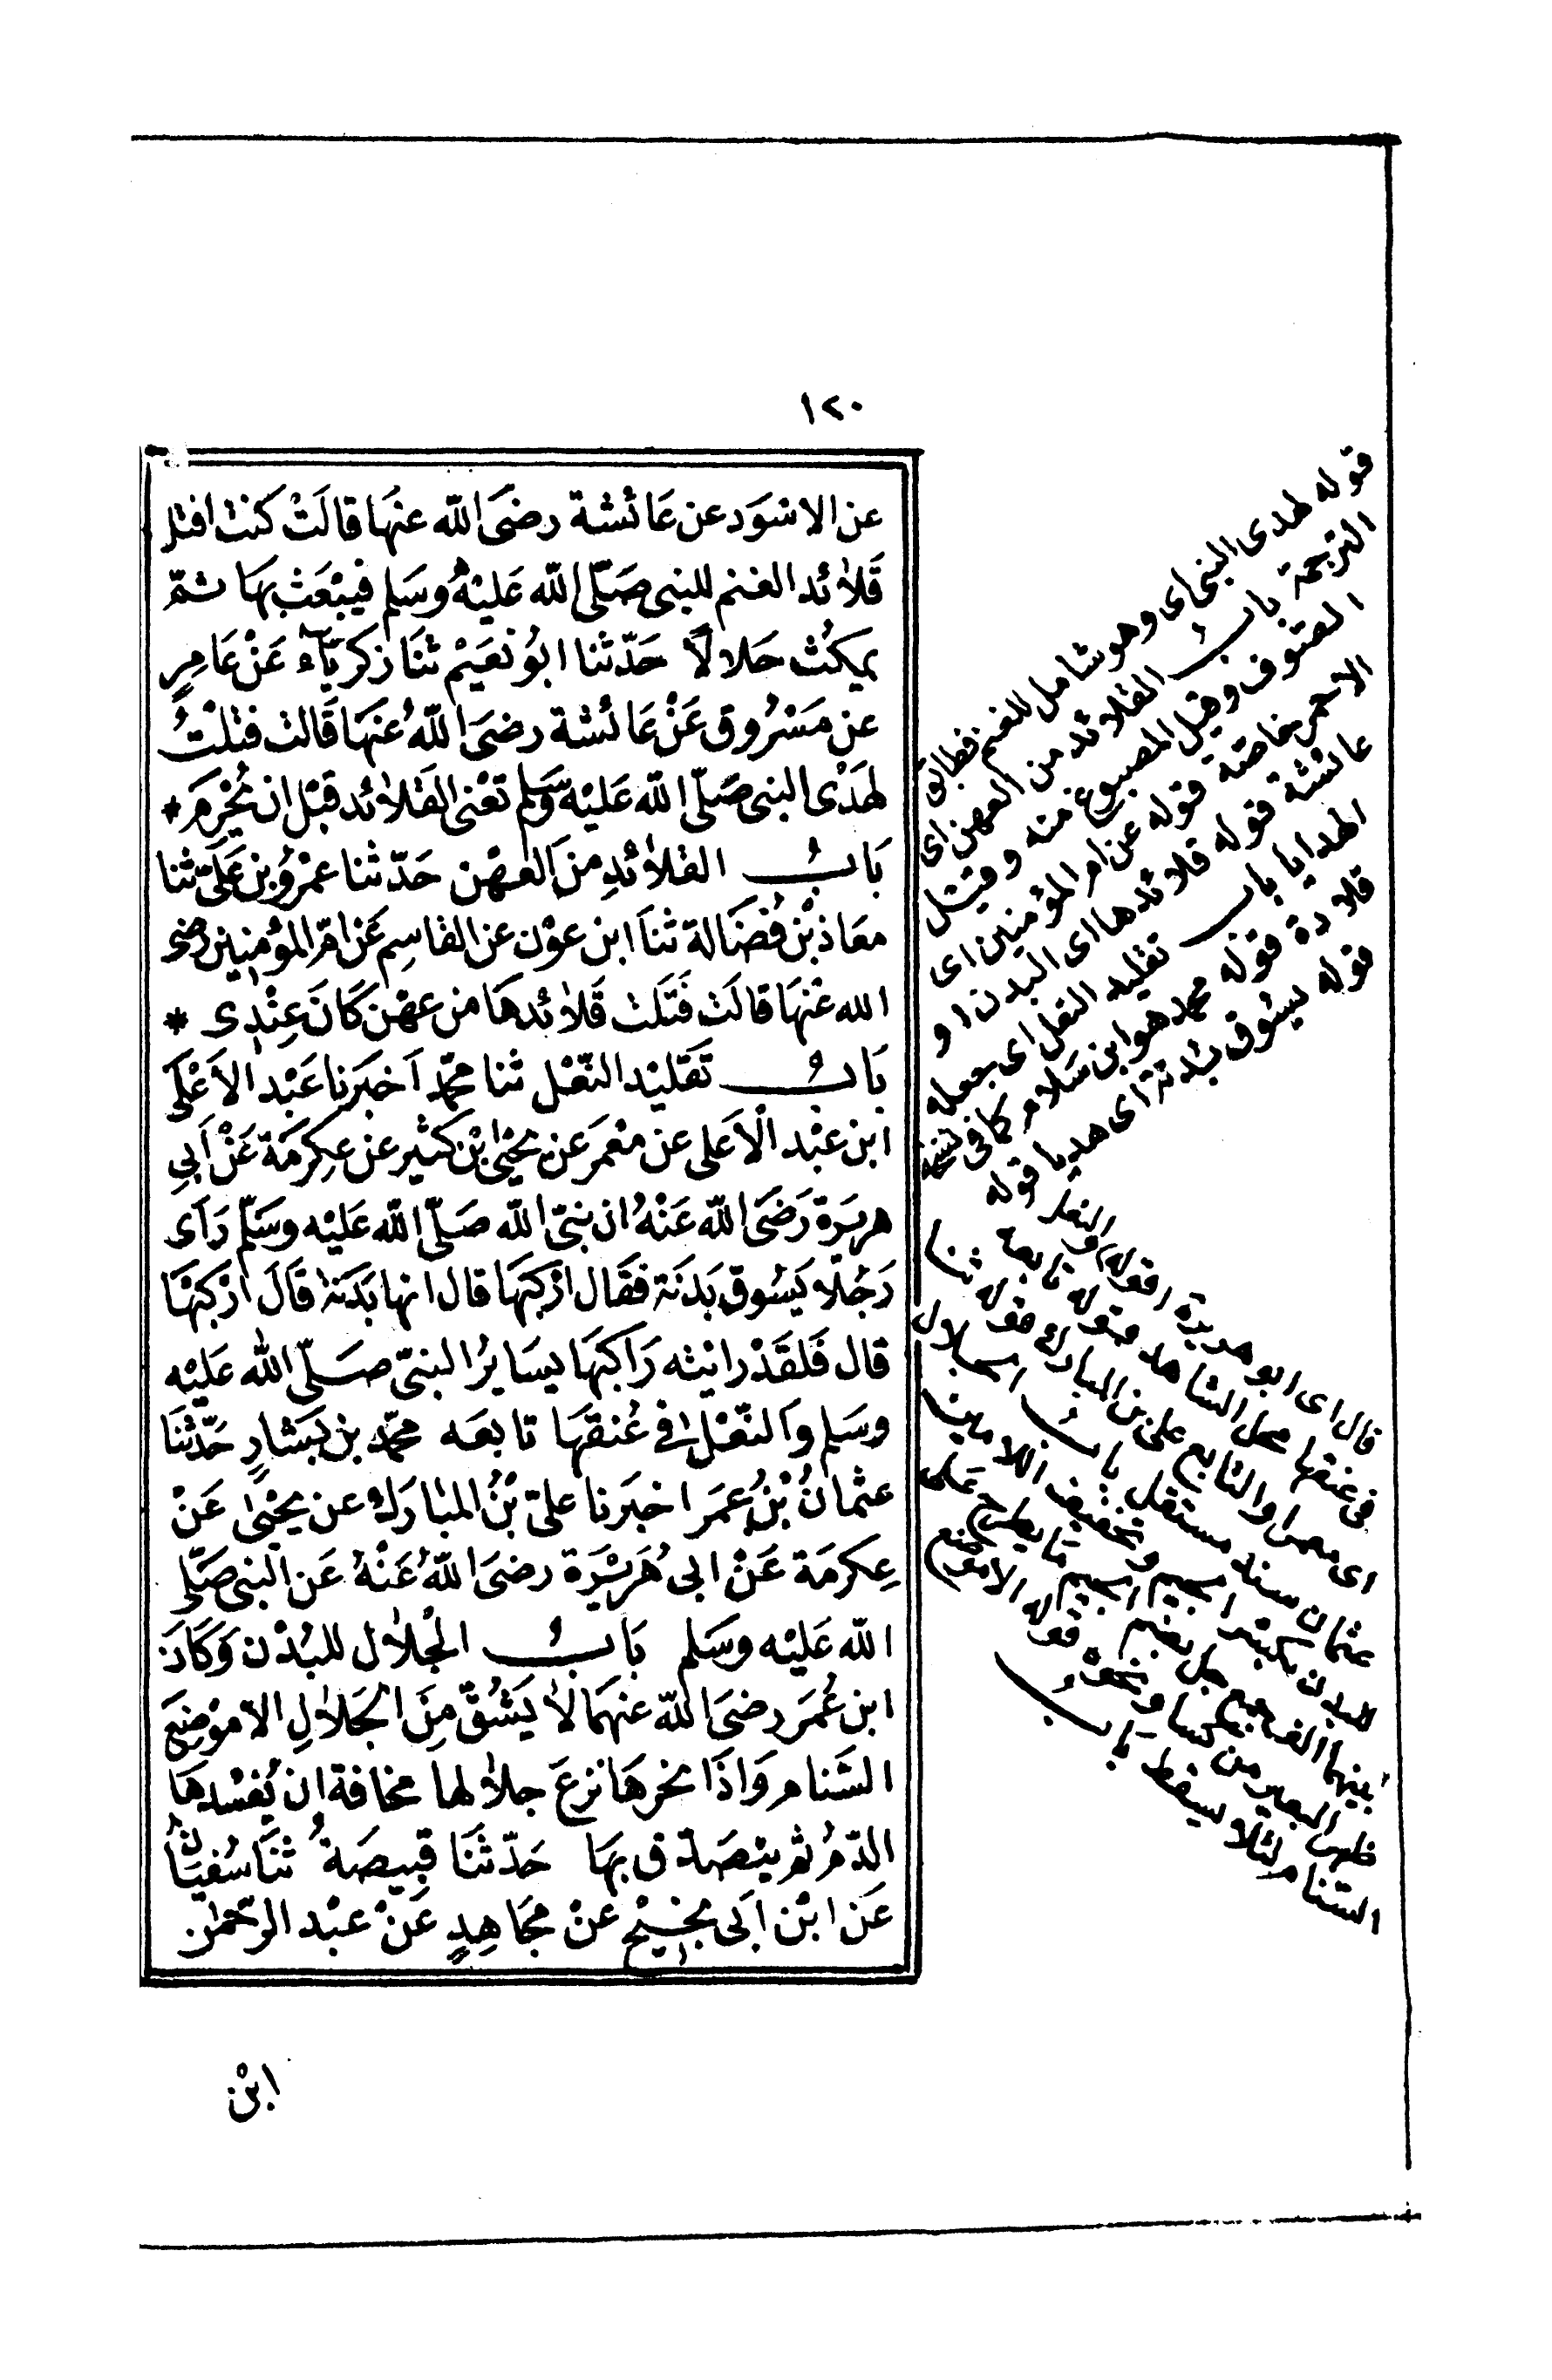 ١٢٠
عن الاسْوَد عن عَائشة رضىَ اللّه عنهَا قالَتْ كنت افتل
قَلائد الغنم للنبى صَلّى اللّه عَليْه وسَلم فيبْعَث بهَا ثمّ
يمكثُ حَلالاً حَدّثنا ابُو نعَيْم ثنَا زكريّآء عَنْ عَامِرٍ
عن مَسْرُوق عَنْ عَائشة رضىَ اللّهُ عنهَا قَالت فتلْتُ
لهَدْى النبى صَلّى اللّه عَليْه وَسَلم تعْنى القَلائد قبْل ان يُحْرِمَ *
بَابُ القلائدِ منَ العهْن حَدّثنا عمْرُو بن عَلىّ ثنا
معَاذ بْن فُضَالة ثنَا ابن عوْن عن القاسِم عَنْ امّ المؤمنِين رضى
الله عَنهَا قالَت فَتَلت قَلائدهَا من عهْن كَانَ عِنْدِى *
بَابُ تَقليْد النّعْل ثنا محمّد اَخبَرنا عَبْد الاَعْلَى
ابن عبْد الْاَعلى عن معْمَر عن يحْيىٰ ابْن كثير عن عِكرمَة عَنْ اَبي
هريرَة رَضىَ اللّه عَنْهُ ان نبىّ اللّه صَلّى اللّه عَليْه وسَلّم رَاَى
رَجُلًا يَسُوق بَدَنَة فقَال ارْكبْهَا قال انها بَدَنة قَالَ ارْكبْهَا
قال فَلقَدْ رايته رَاكبَهَا يسَايرُ النبىّ صَلّى اللّه عَليْه
وسَلم وَالنّعْل فى عُنقهَا تابعَه محمّد بن بَشارٍ حَدّثنَا
عثمانُ بْنُ عمَر اخبَرنا علىّ بْنُ المبَارَك عن يحْيىٰ عَنْ
عِكرمَة عَنْ ابى هُرَيْرَة رضىَ اللّهُ عَنْهُ عَن النبى صَلّى
اللّه عَليْه وسَلم بَابُ الجْلال للبُدْن وَكَانَ
ابن عُمَر رضىَ اللّه عنهمَا لَا يَشُقُّ مِنَ الْجلَالِ الا مَوْضعَ
السَنام وَاذَا نحرهَا نزعَ جلالها مخافة ان يُفسْدهَا
الدّمُ ثم يتصَدّق بهَا حَدّثنَا قبيصَةُ ثنَا سُفيَانُ
عَن ابْن اَبى نجيْح عنْ مجَاهِدٍ عَنْ عبْد الرّحمٰن
ابْن
قوله لهدى النبى اى وهو شامل للغنم فطابق
الترجمة بابُ القلائد من العهن اى
الصوف وقيل المصبوغ منه وقيل
الاحمر خاصة قوله عن ام المؤمنين اى
عائشة قوله قلائدها اى البدن او
الهدايا باب تقليد النعل اى جعله
قلادة قوله محمد هو ابن سلام كما فى نسخة
قوله يسوق بدنة اى هديا قوله
قال اى ابو هريرة قوله والنعل
فى عنقها محل الشاهد قوله تابعه
اى معمرا والتابع على بن المبارك قوله ثنا
عثمان سند مستقل باب الجلال
للبدن بكسر الجيم وتخفيف اللام
بينهما الف جمع جل بضم الجيم ما يطرح على
ظهر البعير من كساء ونحوه قوله الا موضع
السنام لئلا يسقط باب